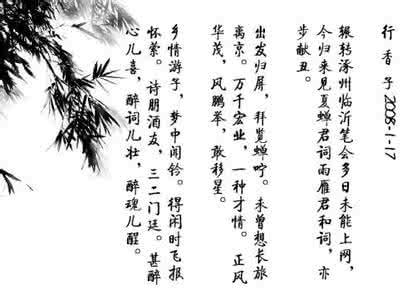 行香子 2008-1-17
辗转涿州临沂笔会多日未能上网，
今归来见夏蝉君词雨雁君和词，亦
步献丑。
出发归屏，拜览蝉咛。未曾想长旅
离京。万千宏业，一种才情。正风
华茂，风鹏举，敢移星。
乡情游子，梦中闻铃。得闲时飞报
怀萦。诗朋酒友，三二门廷。甚醉
心儿喜，醉词儿壮，醉魂儿醒。